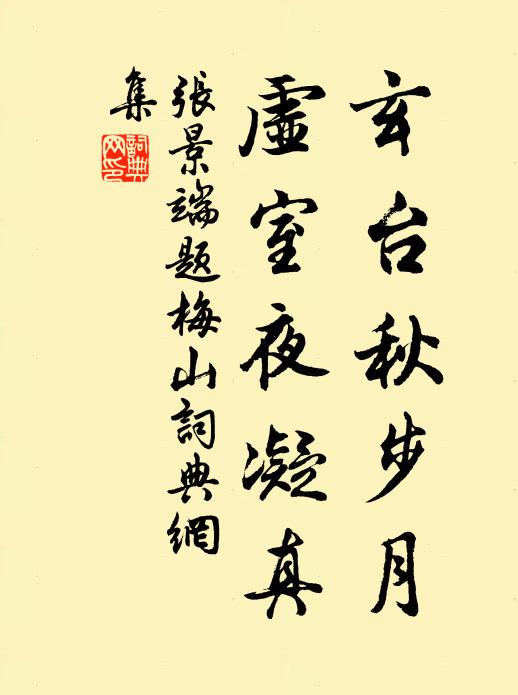 玄台秋步月
虛室夜凝真
張景端題梅山詞典網
集
詞典网印